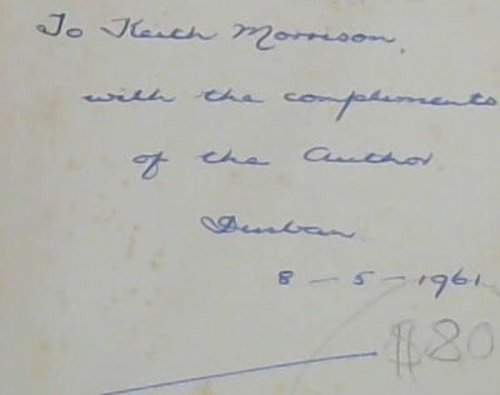 To Keith Morrison,
with the compliments
of the Author
Durban
8 - 5 - 1961
$80